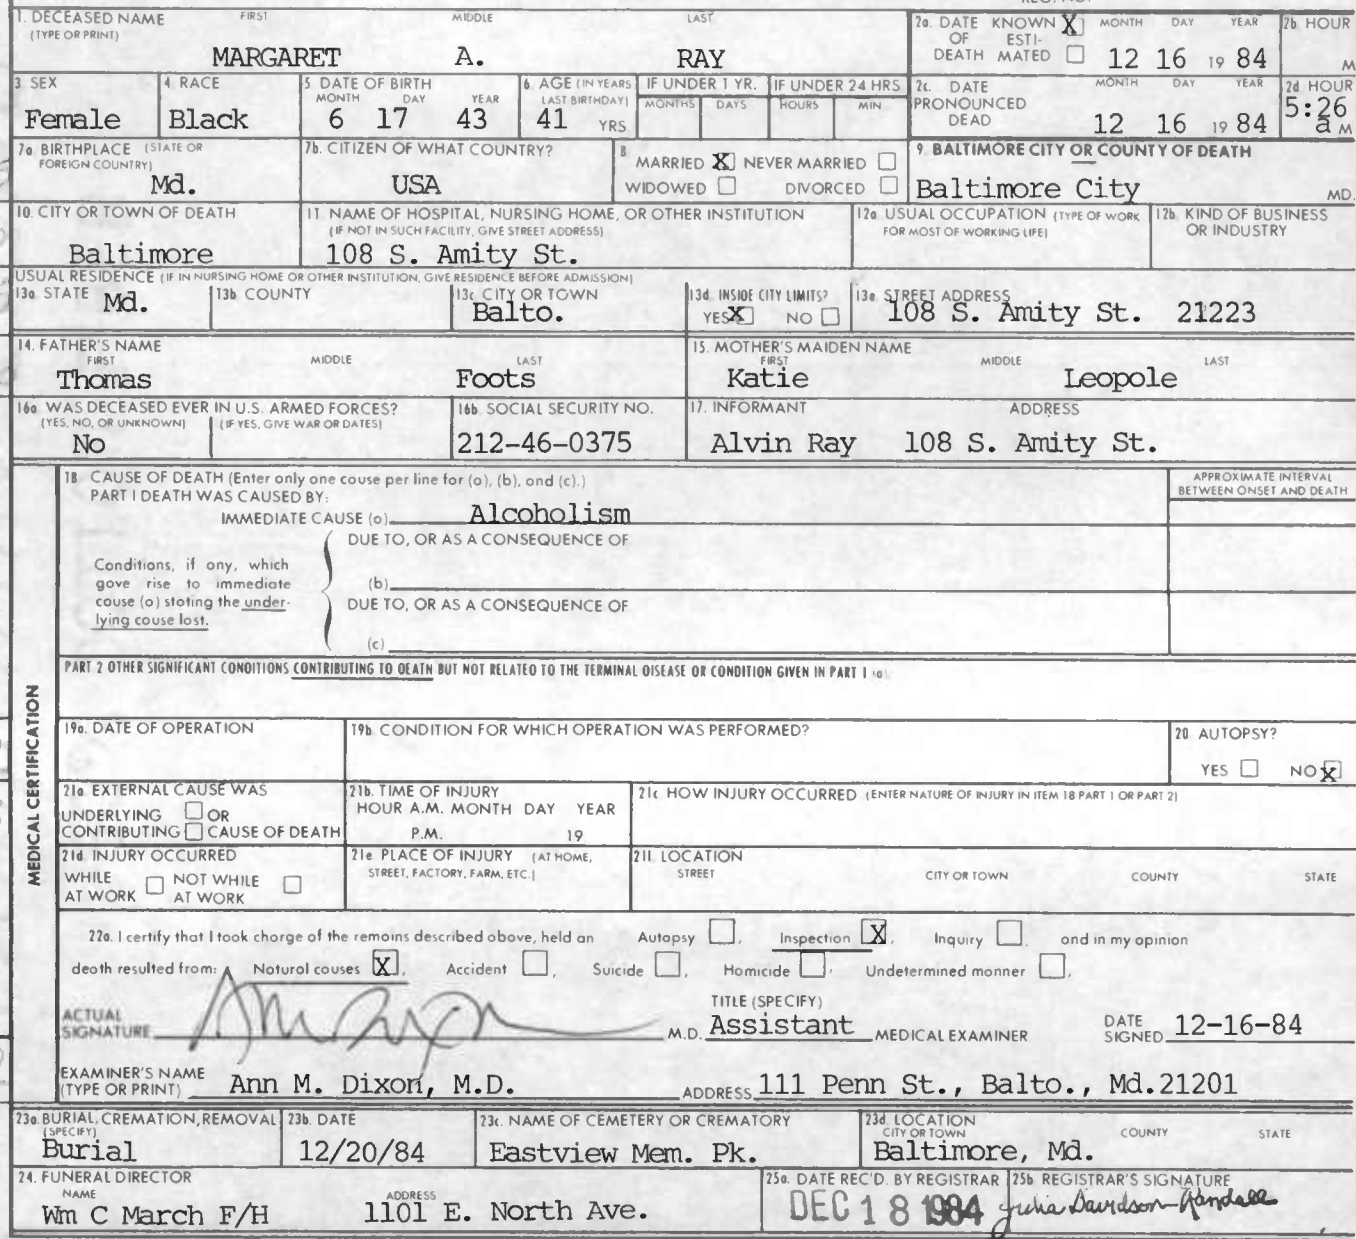 1. DECEASED NAME FIRST MIDDLE LAST
(TYPE OR PRINT)
MARGARET A. RAY
2a. DATE KNOWN X MONTH DAY YEAR
OF ESTI-
DEATH MATED 12 16 19 84
2b HOUR
M
3 SEX
Female
4 RACE
Black
5 DATE OF BIRTH
MONTH DAY YEAR
6 17 43
6. AGE (IN YEARS
LAST BIRTHDAY)
41 YRS.
IF UNDER 1 YR.
MONTHS DAYS
IF UNDER 24 HRS
HOURS MIN
2c. DATE MONTH DAY YEAR
PRONOUNCED
DEAD 12 16 19 84
2d HOUR
5:26
a M
7a BIRTHPLACE (STATE OR
FOREIGN COUNTRY)
Md.
7b. CITIZEN OF WHAT COUNTRY?
USA
8
MARRIED X NEVER MARRIED
WIDOWED DIVORCED
9. BALTIMORE CITY OR COUNTY OF DEATH
Baltimore City MD.
10. CITY OR TOWN OF DEATH
Baltimore
11. NAME OF HOSPITAL, NURSING HOME, OR OTHER INSTITUTION
(IF NOT IN SUCH FACILITY, GIVE STREET ADDRESS)
108 S. Amity St.
12a USUAL OCCUPATION (TYPE OF WORK
FOR MOST OF WORKING LIFE)
12b. KIND OF BUSINESS
OR INDUSTRY
USUAL RESIDENCE (IF IN NURSING HOME OR OTHER INSTITUTION, GIVE RESIDENCE BEFORE ADMISSION)
13a STATE Md.
13b COUNTY
13c CITY OR TOWN
Balto.
13d. INSIDE CITY LIMITS?
YES X NO
13e. STREET ADDRESS
108 S. Amity St. 21223
14. FATHER'S NAME
FIRST MIDDLE LAST
Thomas Foots
15. MOTHER'S MAIDEN NAME
FIRST MIDDLE LAST
Katie Leopole
16a WAS DECEASED EVER IN U.S. ARMED FORCES?
(YES, NO, OR UNKNOWN) (IF YES, GIVE WAR OR DATES)
No
16b SOCIAL SECURITY NO.
212-46-0375
17. INFORMANT ADDRESS
Alvin Ray 108 S. Amity St.
MEDICAL CERTIFICATION
18 CAUSE OF DEATH (Enter only one cause per line for (a), (b), and (c).)
PART I DEATH WAS CAUSED BY:
IMMEDIATE CAUSE (a) Alcoholism
APPROXIMATE INTERVAL
BETWEEN ONSET AND DEATH
DUE TO, OR AS A CONSEQUENCE OF
Conditions, if any, which
gave rise to immediate
cause (a) stating the under-
lying cause last.
(b)
DUE TO, OR AS A CONSEQUENCE OF
(c)
PART 2 OTHER SIGNIFICANT CONDITIONS CONTRIBUTING TO DEATH BUT NOT RELATED TO THE TERMINAL DISEASE OR CONDITION GIVEN IN PART 1 (a)
19a. DATE OF OPERATION
19b. CONDITION FOR WHICH OPERATION WAS PERFORMED?
20 AUTOPSY?
YES NO X
21a EXTERNAL CAUSE WAS
UNDERLYING OR
CONTRIBUTING CAUSE OF DEATH
21b. TIME OF INJURY
HOUR A.M. MONTH DAY YEAR
P.M. 19
21c HOW INJURY OCCURRED (ENTER NATURE OF INJURY IN ITEM 18 PART 1 OR PART 2)
21d INJURY OCCURRED
WHILE NOT WHILE
AT WORK AT WORK
21e PLACE OF INJURY (AT HOME,
STREET, FACTORY, FARM, ETC.)
21f. LOCATION
STREET CITY OR TOWN COUNTY STATE
22a. I certify that I took charge of the remains described above, held an Autopsy , Inspection X, Inquiry , and in my opinion
death resulted from: Natural causes X, Accident , Suicide , Homicide , Undetermined manner ,
ACTUAL
SIGNATURE M.D.
TITLE (SPECIFY)
Assistant MEDICAL EXAMINER
DATE
SIGNED 12-16-84
EXAMINER'S NAME
(TYPE OR PRINT) Ann M. Dixon, M.D. ADDRESS 111 Penn St., Balto., Md.21201
23a. BURIAL, CREMATION, REMOVAL
(SPECIFY)
Burial
23b. DATE
12/20/84
23c. NAME OF CEMETERY OR CREMATORY
Eastview Mem. Pk.
23d. LOCATION
CITY OR TOWN COUNTY STATE
Baltimore, Md.
24. FUNERAL DIRECTOR
NAME ADDRESS
Wm C March F/H 1101 E. North Ave.
25a. DATE REC'D. BY REGISTRAR
DEC 18 1984
25b. REGISTRAR'S SIGNATURE
Julia Davidson-Randall